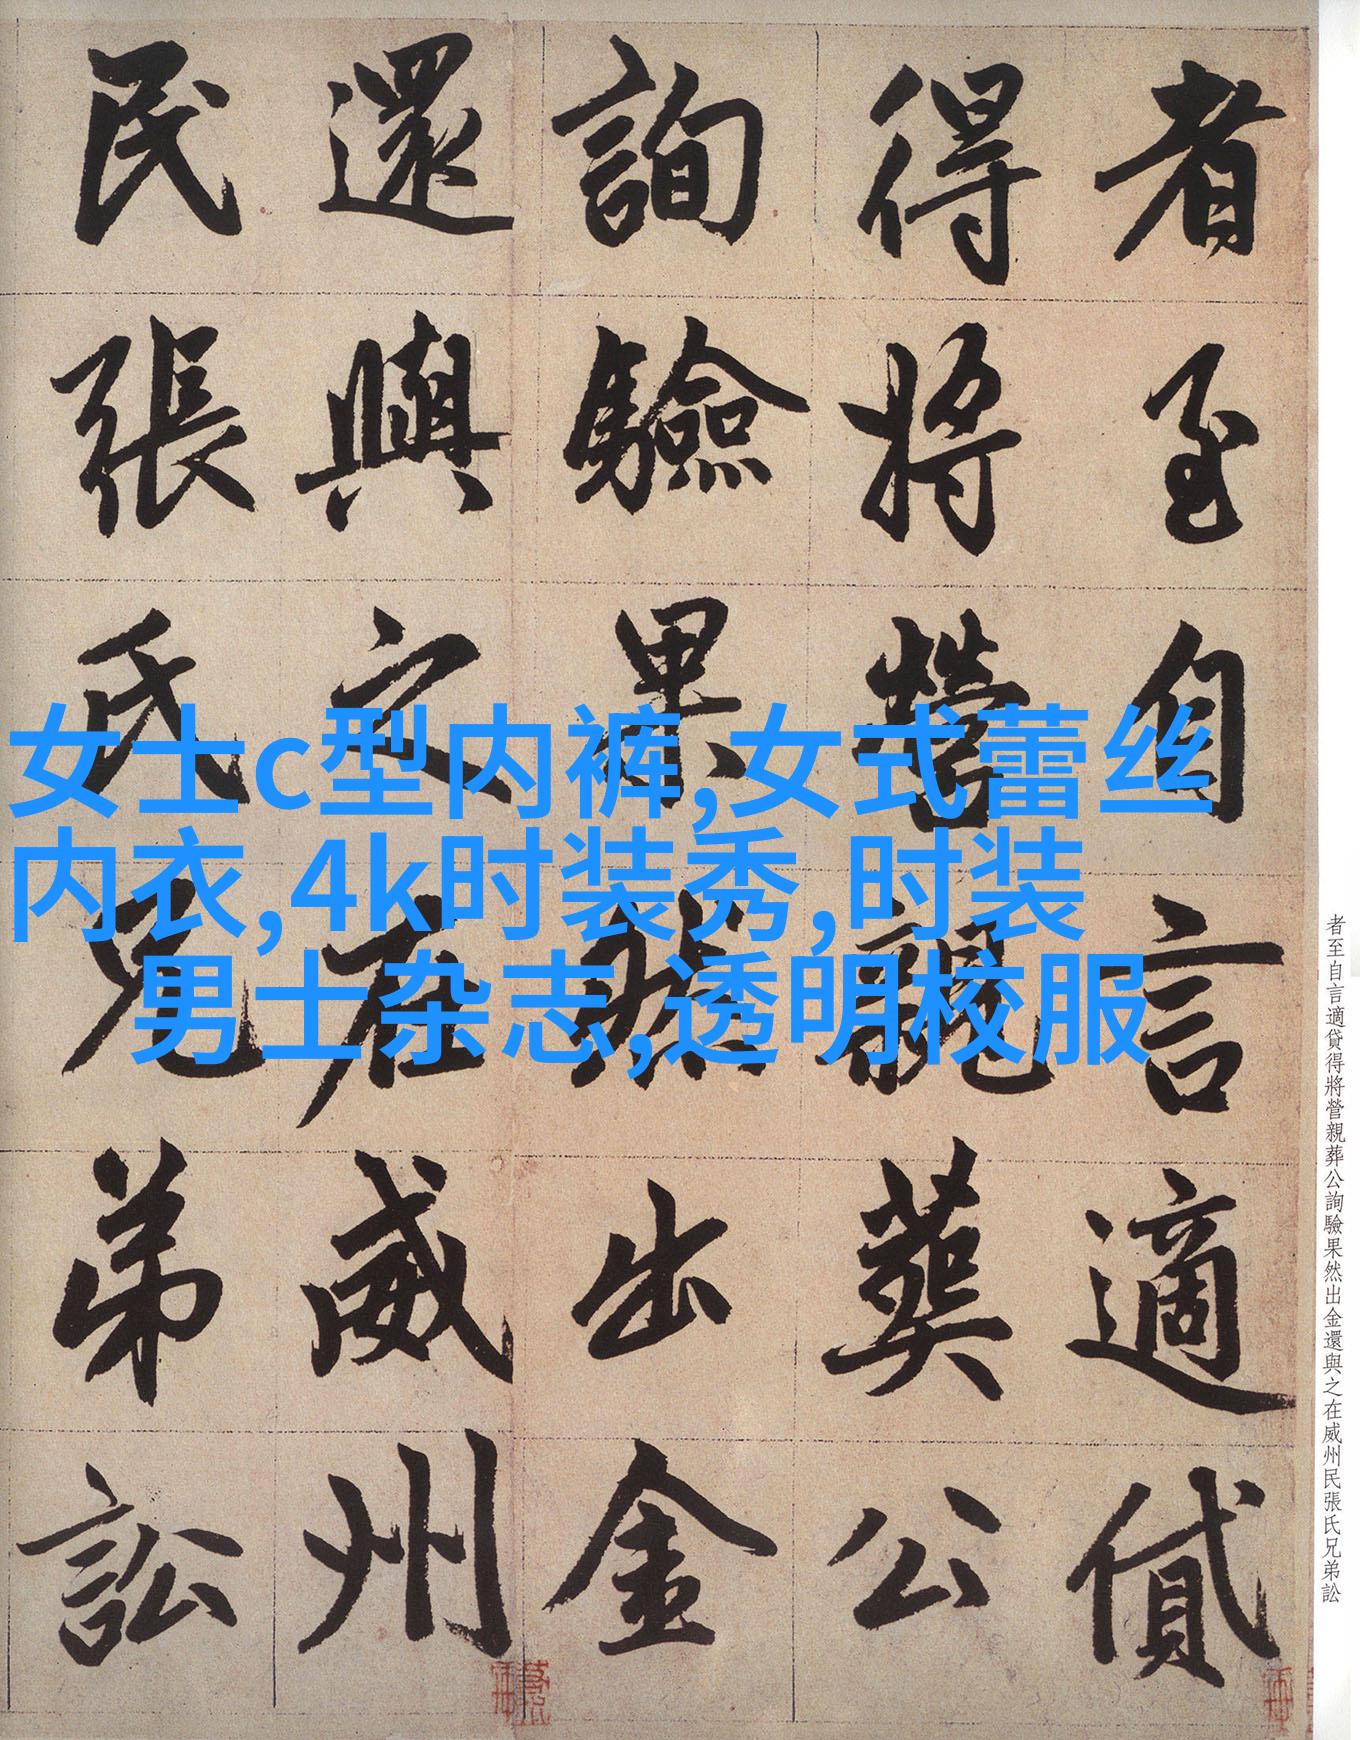 者至自言適貸
得將營親葬公
詢驗果然出金
還與之在威州
民張氏兄弟訟
女士c型内裤,女式蕾丝
内衣,4k时装秀,时装
男士杂志,透明校服
者至自言適貸得將營親葬公詢驗果然出金還與之在威州民張氏兄弟訟